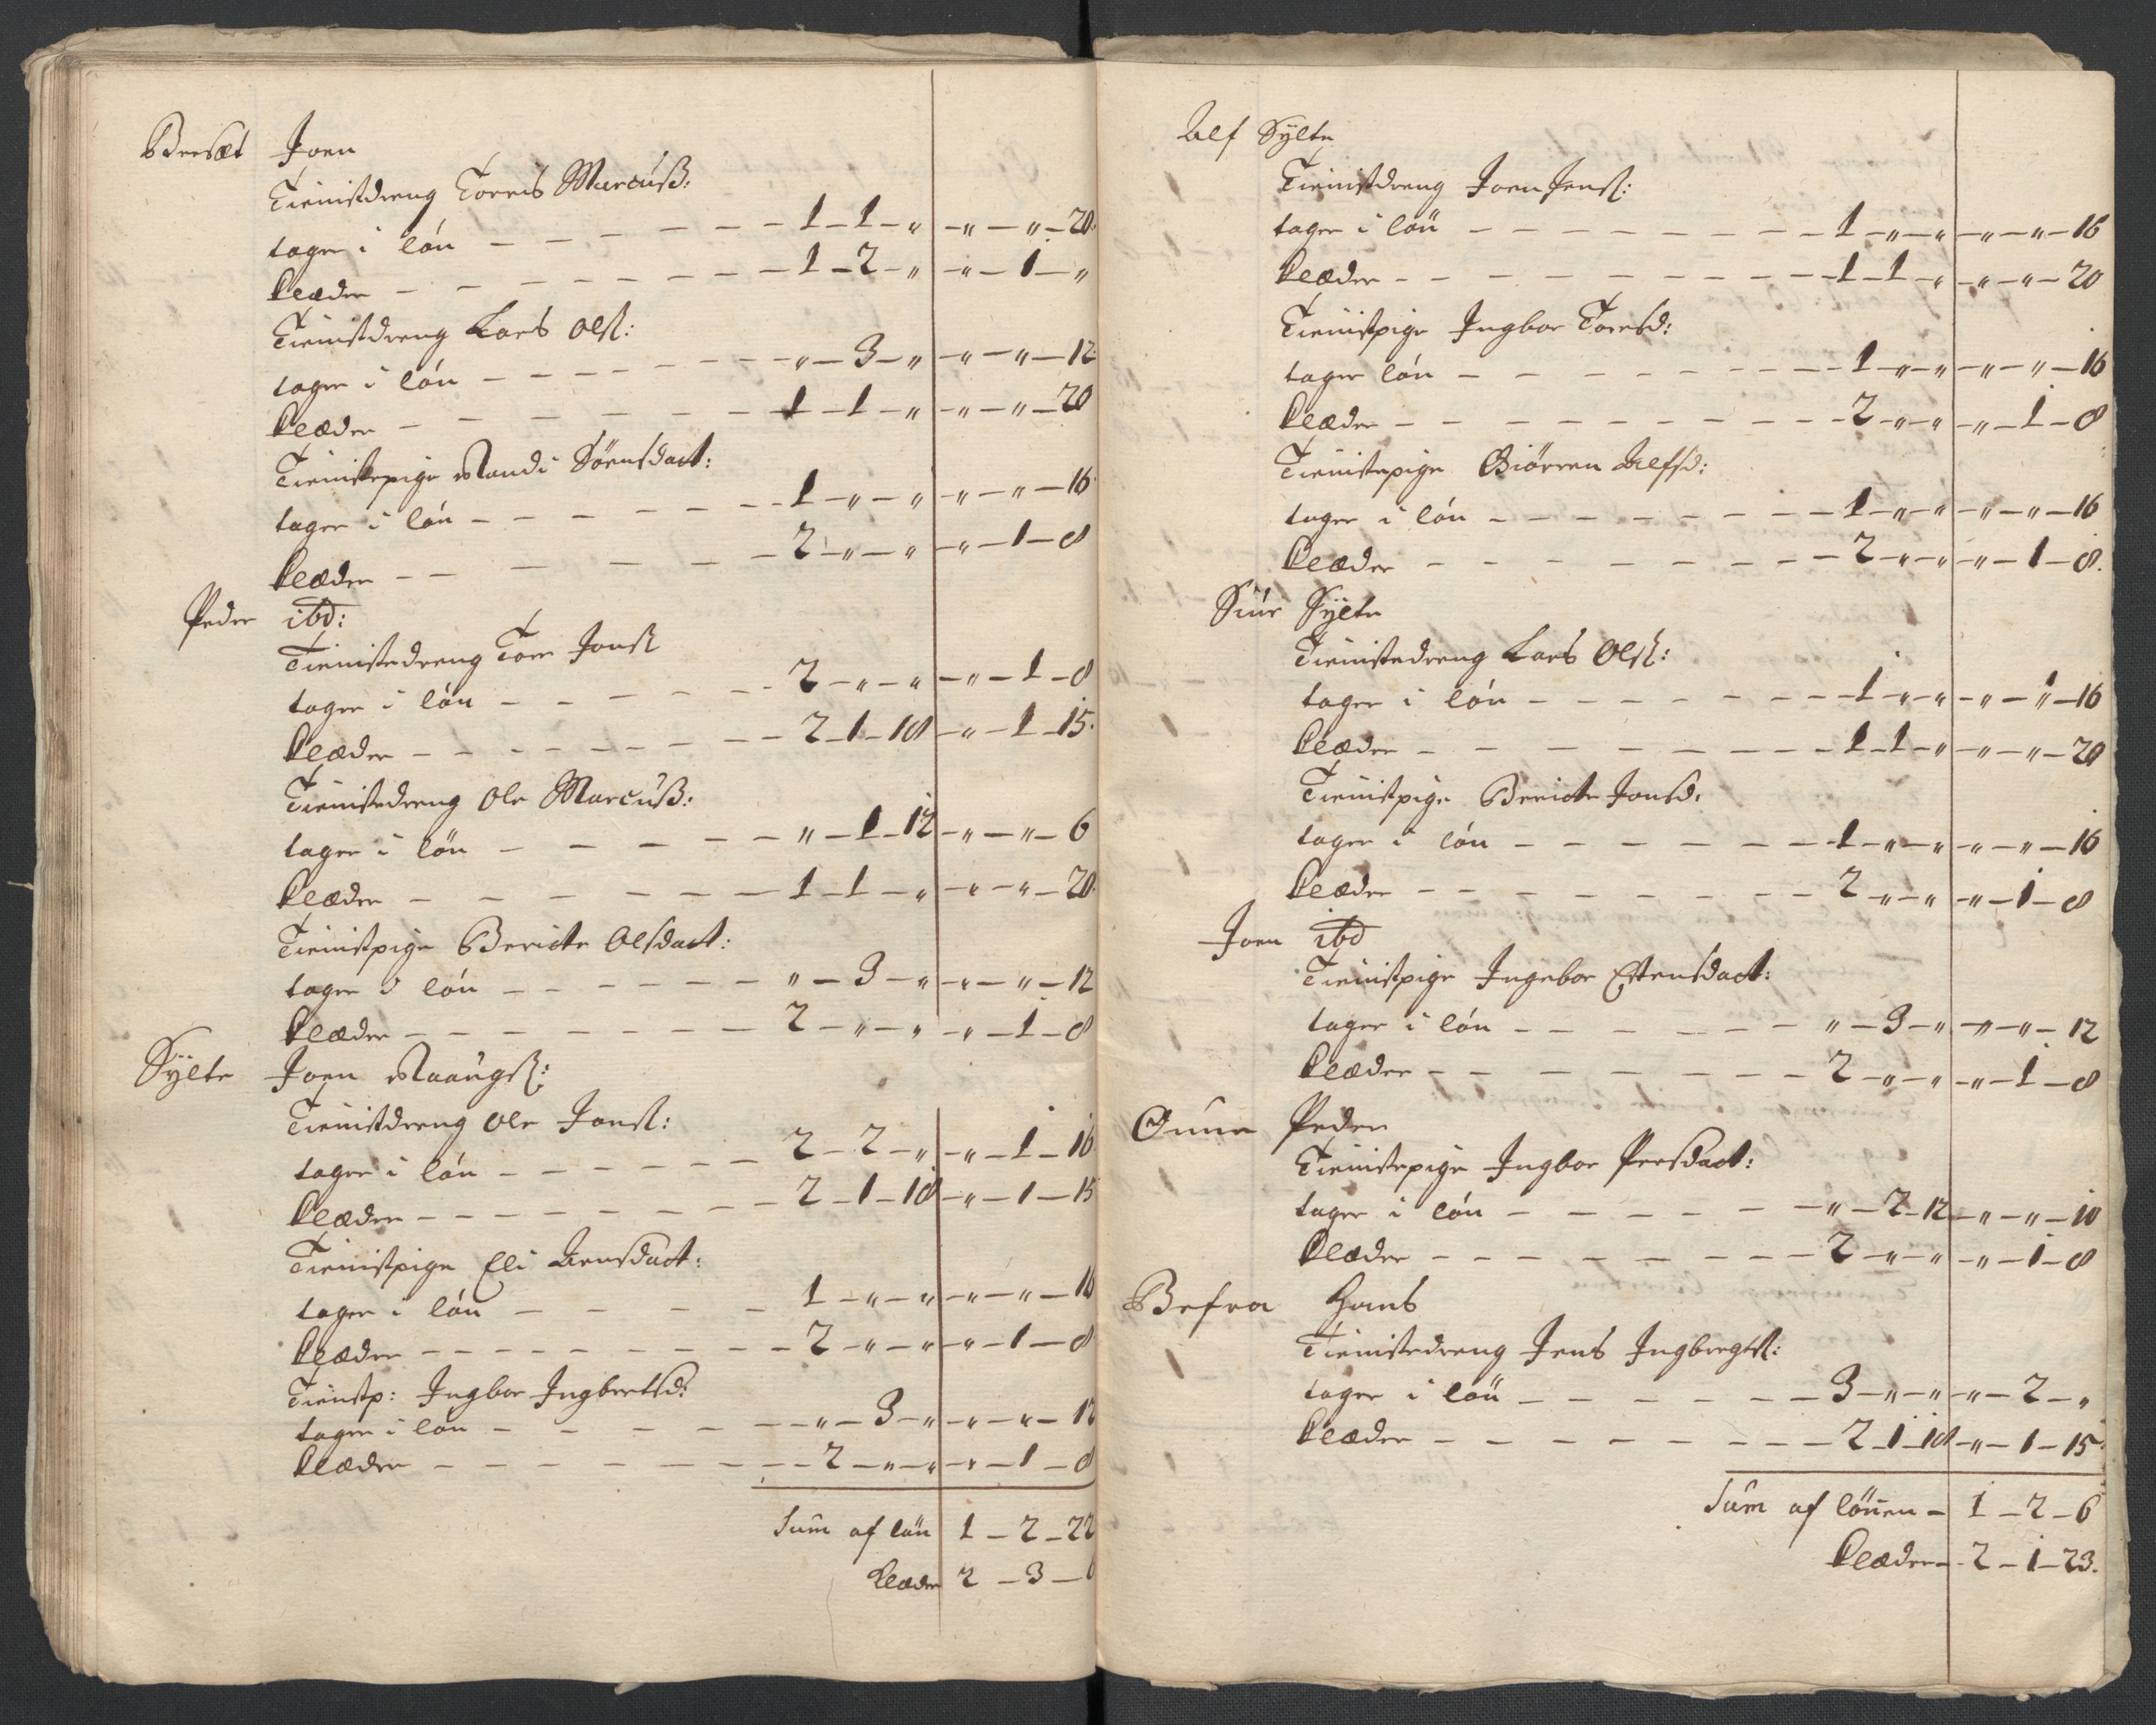 Bersæt Joen
Tienistdreng Torris Marcuss:
tager i lön – 1 – 1 – " – " – " – 20.
klæder – 1 – 2 – " – " – 1 – "
Tienistdreng Lars Ols:
tager i lön – " – 3 – " – " – " – 12
klæder – 1 – 1 – " – " – " – 20
Tienistepige Randi Sörensdact:
tager i lön – 1 – " – " – " – " – 16
klæder – 2 – " – " – " – 1 – 8
Peder ibd:
Tienistedreng Tore Jons
tager i lön – 2 – " – " – " – 1 – 8
klæder – 2 – 1 – 18 – " – 1 – 15.
Tienistedreng Ole Marcuss:
tager i lön – " – 1 – 12 – " – " – 6
klæder – 1 – 1 – " – " – " – 20.
Tienistpige Bericte Olsdact:
tager i lön – " – 3 – " – " – " – 12
klæder – 2 – " – " – " – 1 – 8
Sylte Joen Raaugs:
Tienistdreng Ole Jons:
tager i lön – 2 – 2 – " – " – 1 – 16
klæder – 2 – 1 – 18 – " – 1 – 15
Tienistpige Eli
tager i lön – 1 – " – " – " – " – 16
klæder – 2 – " – " – " – 1 – 8
Tienstp: Ingbor Ingbretsd:
tager i lön – " – 3 – " – " – " – 12
klæder – 2 – " – " – " – 1 – 8
Sum af lön 1 – 2 – 22
klæder 2 – 3 –
Alf Sylte
Tienistdreng Joen Jens:
tager i lön – 1 – " – " – " – " – 16
klæder – 1 – 1 – " – " – " – 20
Tienistpige Ingbor Toresd:
tager lön – 1 – " – " – " – " – 16
klæder – 2 – " – " – " – 1 – 8
Tienistepige Giörren Alfsd:
tager i lön – 1 – " – " – " – " – 16
klæder – 2 – " – " – " – 1 – 8.
Siur Sylte
Tienistedreng Lars Ols:
tager i lön – 1 – " – " – " – " – 16
klæder – 1 – 1 – " – " – " – 20
Tienistpige Bericte Jonsd:
tager i lön – 1 – " – " – " – " – 16
klæder – 2 – " – " – " – 1 – 8
Joen ibd
Tienistpige Ingebor Estensdact:
tager i lön – " – 3 – " – " – " – 12
klæder – 2 – " – " – " – 1 – 8
Peder
Tienistepige Ingbor Persdact:
tager i lön – " – 2 – 12 – " – " – 10
klæder – 2 – " – " – " – 1 – 8
Befra Hans
Tienistedreng Jens Ingbregts:
tager i lön – 3 – " – " – " – 2 – "
klæder – 2 – 1 – 18 – " – 1 – 15
Sum af lönen – 1 – 2 – 6
klæder – 2 – 1 – 23.